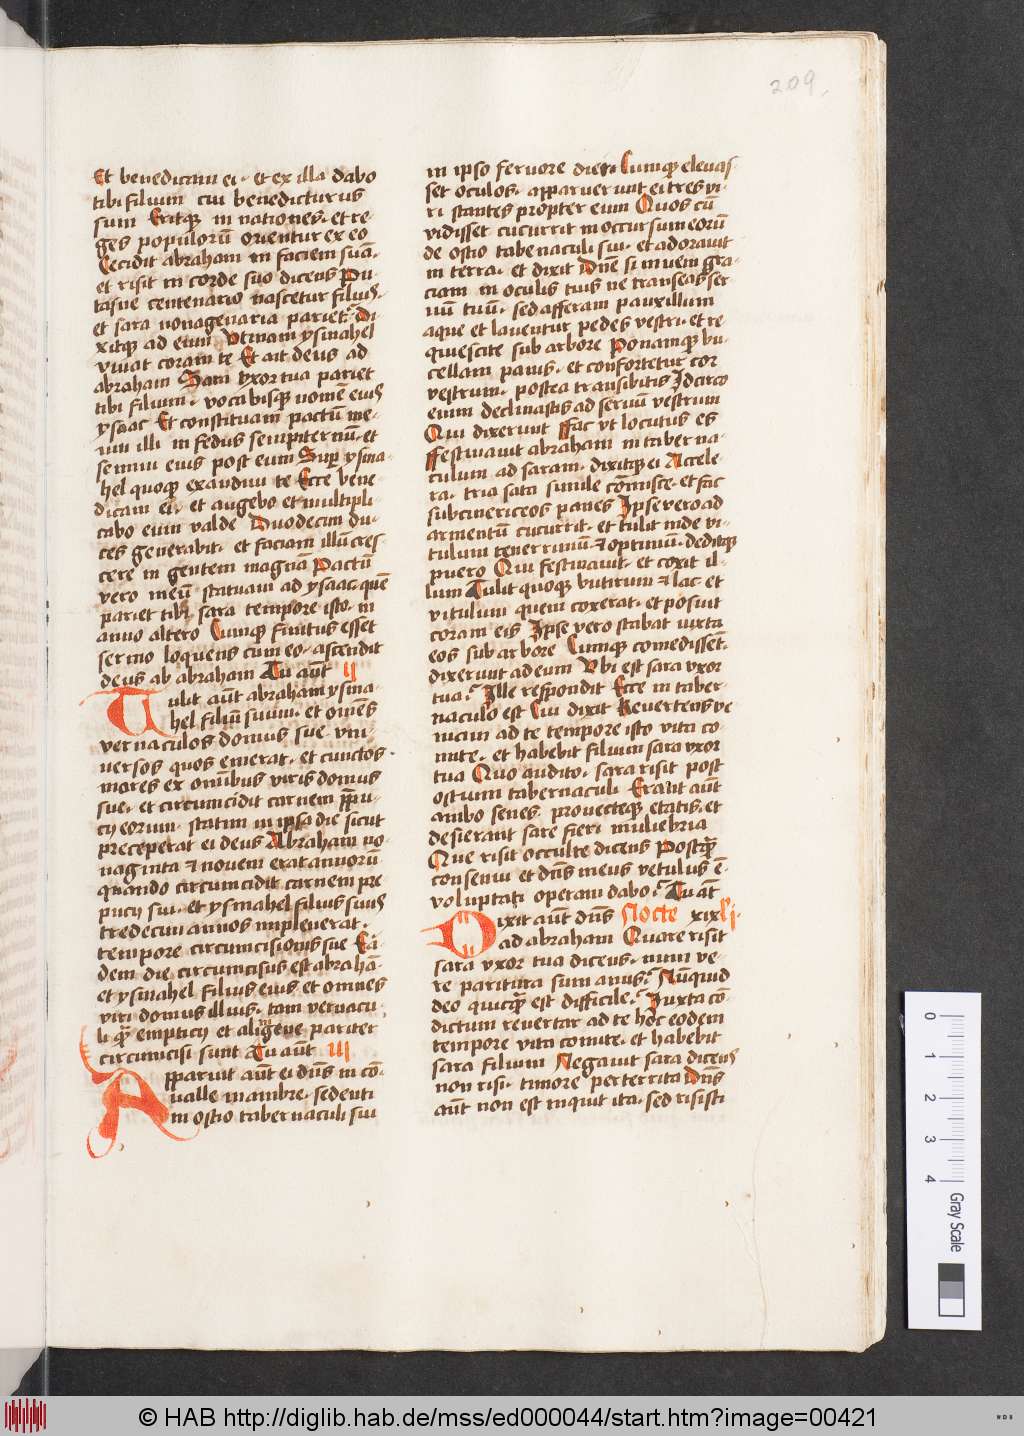 209.
Et benedicam ei · et ex illa dabo
tibi filium cui benedicturus
sum Eritq̧ in nationes · et re-
ges populorū orientur ex eo
Cecidit abraham in faciem suā ·
et risit in corde suo dicens Pu-
tasne centenario nascetur filius ·
et sara nonagenaria pariet? Di-
xitq̧ ad eum Vtinam ysmahel
viuat coram te Et ait deus ad
abraham Sara vxor tua pariet
tibi filium · vocabisq̧ nomē eius
ysaac Et constituam pactū me-
um illi in fedus sempiternū · et
semini eius post eum Sup ysma-
hel quoq̧ exaudiui te Ecce bene-
dicam ei · et augebo et multipli-
cabo eum valde Duodecim du-
ces generabit · et faciam illū cres-
cere in gentem magnā Pactū
vero meū statuam ad ysaac · quē
pariet tibi sara tempore isto · in
anno altero Cumq̧ finitus esset
sermo loquens cum eo · ascendit
deus ab abraham Tu aūt II
Tulit aūt abraham ysma-
hel filiū suum · et omēs
vernaculos domus sue vni-
uersos quos emerat · et cunctos
mares ex omībus viris domus
sue · et circumcidit carnem p̄pu-
cij eorum · statim in ipsa die sicut
preceperat ei deus Abraham no-
naginta et nouem erat annorū
quando circumcidit carnem pre
pucij sui · et ysmahel filius suus
tredecim annos impleuerat ·
tempore circumcisionis sue Eā-
dem die circumcisus est abrahā ·
et ysmahel filius eius et omnes
viri domus illius · tam vernacu-
li q̄ȝ empticij et aligene pariter
circumcisi sunt Tu aūt III
Apparuit aūt ei dn̄s in cō-
ualle mambre · sedenti
in ostio tabernaculi sui
in ipso feruore diei · Cumq̧ eleuas-
set oculos · apparuerunt ei tres vi-
ri stantes propter eum Quos cū
vidisset cucurrit in occursum eorū
de ostio tabernaculi sui · et adorauit
in terra · et dixit Dn̄e si inueni gra-
ciam in oculis tuis ne transeas ser
uū tuū · sed afferam pauxillum
aque et lauentur pedes vestri · et re
quiescite sub arbore Ponamq̧ bu-
cellam panis · et confortetur cor
vestrum · postea transibitis Idcirco
enim declinastis ad seruū vestrum
Qui dixerunt ffac vt locutus es
ffestinauit abraham in taberna-
culum ad saram · dixitq̧ ei Accele-
ra · tria sata simile cōmisce · et fac
subcinericeos panes Ipse vero ad
armentū cucurrit · et tulit inde vi-
tulum tenerrimū · et optimū · deditq̧
puero Qui festinauit · et coxit il-
lum Tulit quoq̧ butirum et lac · et
vitulum quem coxerat · et posuit
coram eis Ipse vero stabat iuxta
eos sub arbore Cumq̧ comedisset ·
dixerunt ad eum Vbi est sara vxor
tua? Ille respondit Ecce in taber-
naculo est Cui dixit Reuertens ve
niam ad te tempore isto vita co-
mite · et habebit filium sara vxor
tua Quo audito · sara risit post
ostium tabernaculi Erant aūt
ambo senes · prouecteq̧ etatis · et
desierant sare fieri muliebria
Que risit occulte dicens Postq̄ȝ
consenui et dn̄s meus vetulus ē ·
voluptati operam dabo? Tu āt
Dixit aūt dn̄s Nocte xix li
ad abraham Quare risit
sara vxor tua dicens · num ve-
re paritura sum anus? Nūquid
deo quicq̄ȝ est difficile? Iuxta cō-
dictum reuertar ad te hoc eodem
tempore vita comite · et habebit
sara filium Negauit sara dicens
non risi · timore perterrita Dn̄s
aūt non est inquit ita · sed risisti
0 1 2 3 4
Gray Scale
© HAB http://diglib.hab.de/mss/ed000044/start.htm?image=00421